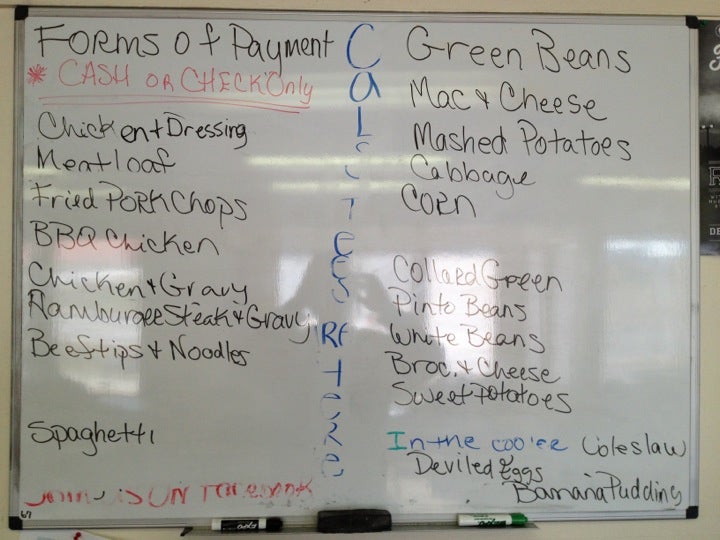 Forms of Payment
* CASH OR CHECK Only
Chicken + Dressing
Meatloaf
Fried PORK Chops
BBQ Chicken
Chicken + Gravy
Hamburger Steak + Gravy
Beef tips + Noodles
Spaghetti
Green Beans
Mac + Cheese
Mashed Potatoes
Cabbage
CORN
Collard Green
Pinto Beans
White Beans
Broc. + Cheese
Sweet Potatoes
In the cooler Coleslaw
Deviled Eggs
Banana Pudding
EXPO
EXPO